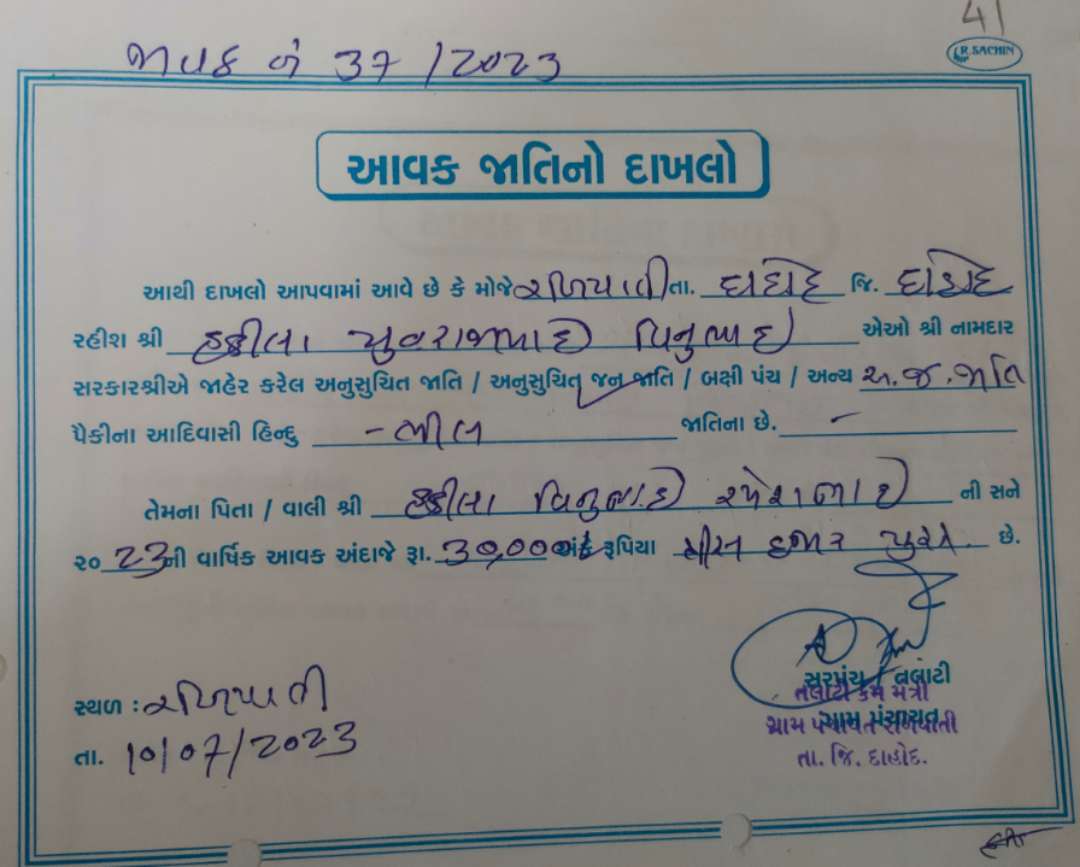 41
R. SACHIN
જાવક નં 37/2023
આવક જાતિનો દાખલો
આથી દાખલો આપવામાં આવે છે કે મોજે રળિયાતી તા. દાહોદ જિ. દાહોદ
રહીશ શ્રી હઠીલા યુવરાજભાઈ વિનુભાઈ એઓ શ્રી નામદાર
સરકારશ્રીએ જાહેર કરેલ અનુસુચિત જાતિ / અનુસુચિત જન જાતિ / બક્ષી પંચ / અન્ય અ.જ.જાતિ
પૈકીના આદિવાસી હિન્દુ - ભીલ જાતિના છે. -
તેમના પિતા / વાલી શ્રી હઠીલા વિનુભાઈ રમેશભાઈ ની સને
૨૦23ની વાર્ષિક આવક અંદાજે રૂા. 30,000 અંકે રૂપિયા ત્રીસ હજાર પુરા. છે.
સ્થળ : રળિયાતી
તા. 10/07/2023
સરપંચ / તલાટી
તલાટી કમ મંત્રી
ગ્રામ પંચાયત
ગ્રામ પંચાયત રળીયાતી
તા. જિ. દાહોદ.